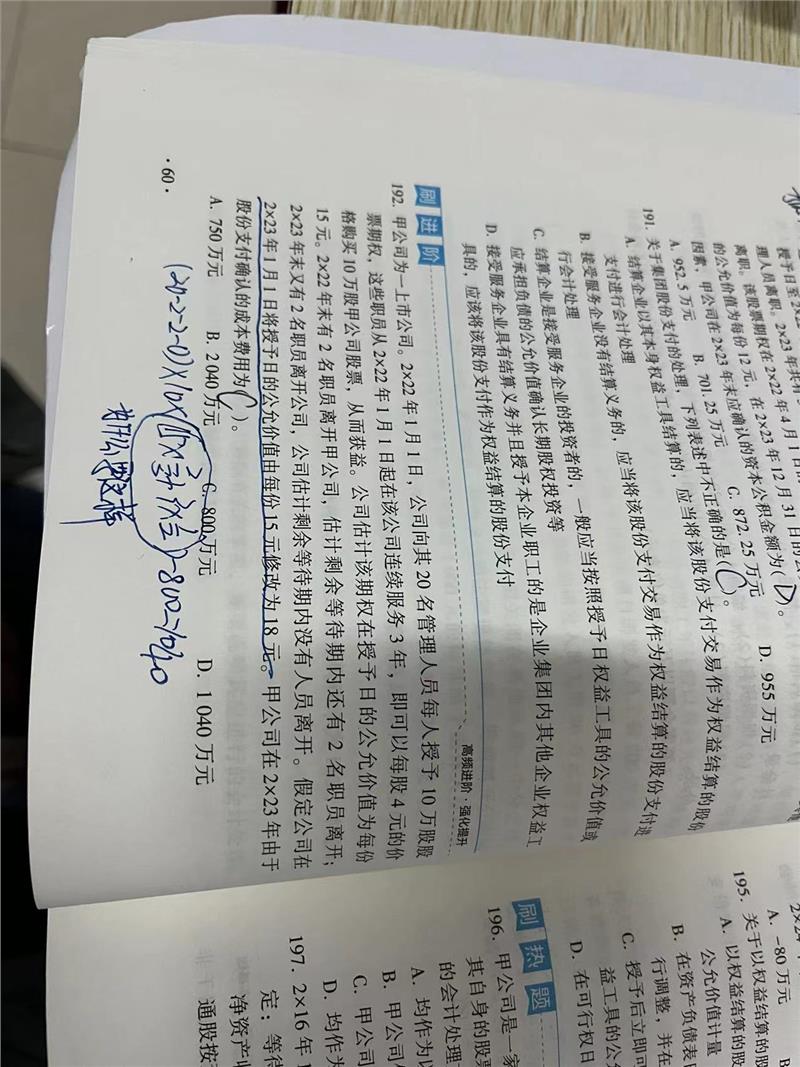 授予日至2×22
理人员离职。2×23年共有
离职。该股票期权在2×22年4月1日的
的公允价值为每份12元，在2×23年12月31日的公
因素，甲公司在2×23年末应确认的资本公积金额为(D)。
A. 952.5万元 B. 701.25万元 C. 872.25万元 D. 955万元
191. 关于集团股份支付的处理，下列表述中不正确的是(C)。
A. 结算企业以其本身权益工具结算的，应当将该股份支付交易作为权益结算的股份
支付进行会计处理
B. 接受服务企业没有结算义务的，应当将该股份支付交易作为权益结算的股份支付进
行会计处理
C. 结算企业是接受服务企业的投资者的，一般应当按照授予日权益工具的公允价值或
应承担负债的公允价值确认长期股权投资等
D. 接受服务企业具有结算义务并且授予本企业职工的是企业集团内其他企业权益工
具的，应该将该股份支付作为权益结算的股份支付
刷进阶
高频进阶·强化提升
192. 甲公司为一上市公司。2×22年1月1日，公司向其20名管理人员每人授予10万股股
票期权，这些职员从2×22年1月1日起在该公司连续服务3年，即可以每股4元的价
格购买10万股甲公司股票，从而获益。公司估计该期权在授予日的公允价值为每份
15元。2×22年末有2名职员离开甲公司，估计剩余等待期内还有2名职员离开；
2×23年末又有2名职员离开公司，公司估计剩余等待期内没有人员离开。假定公司在
2×23年1月1日将授予日的公允价值由每份15元修改为18元。甲公司在2×23年由于
股份支付确认的成本费用为(C)。
A. 750万元 B. 2 040万元 C. 800万元 D. 1 040万元
(20-2-2-0)×10×
-800=1040
为什么要这样
·60·
2×24年
A. -80万元
195. 关于以权益结算的股
A. 以权益结算的股
公允价值计量
B. 在资产负债表日
行调整，并在
C. 授予后立即可
益工具的公允
D. 在可行权日
刷热题
196. 甲公司是一家
其自身的股票
的会计处理
A. 均作为以
B. 甲公司
C. 甲公司
D. 均作为
197. 2×16年1
定：等待
净资产收
通股按